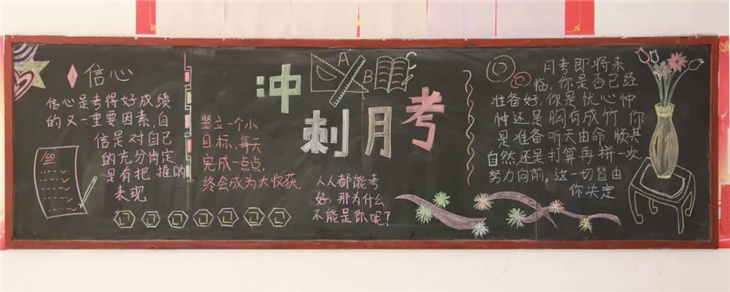 信心
信心是考得好成绩
的又一重要因素,自
信是对自己
的充分肯定
是有把握的
表现
100
竖立一个小
目标,每天
完成一点点,
终会成为大收获
冲刺月考
A
B
C
人人都能考
好,那为什么
不能是你呢?
月考即将来
临,你是否已经
准备好,你是忧心忡
忡还是胸有成竹,你
是准备听天由命,顺其
自然还是打算再拼一次
努力向前,这一切皆由
你决定